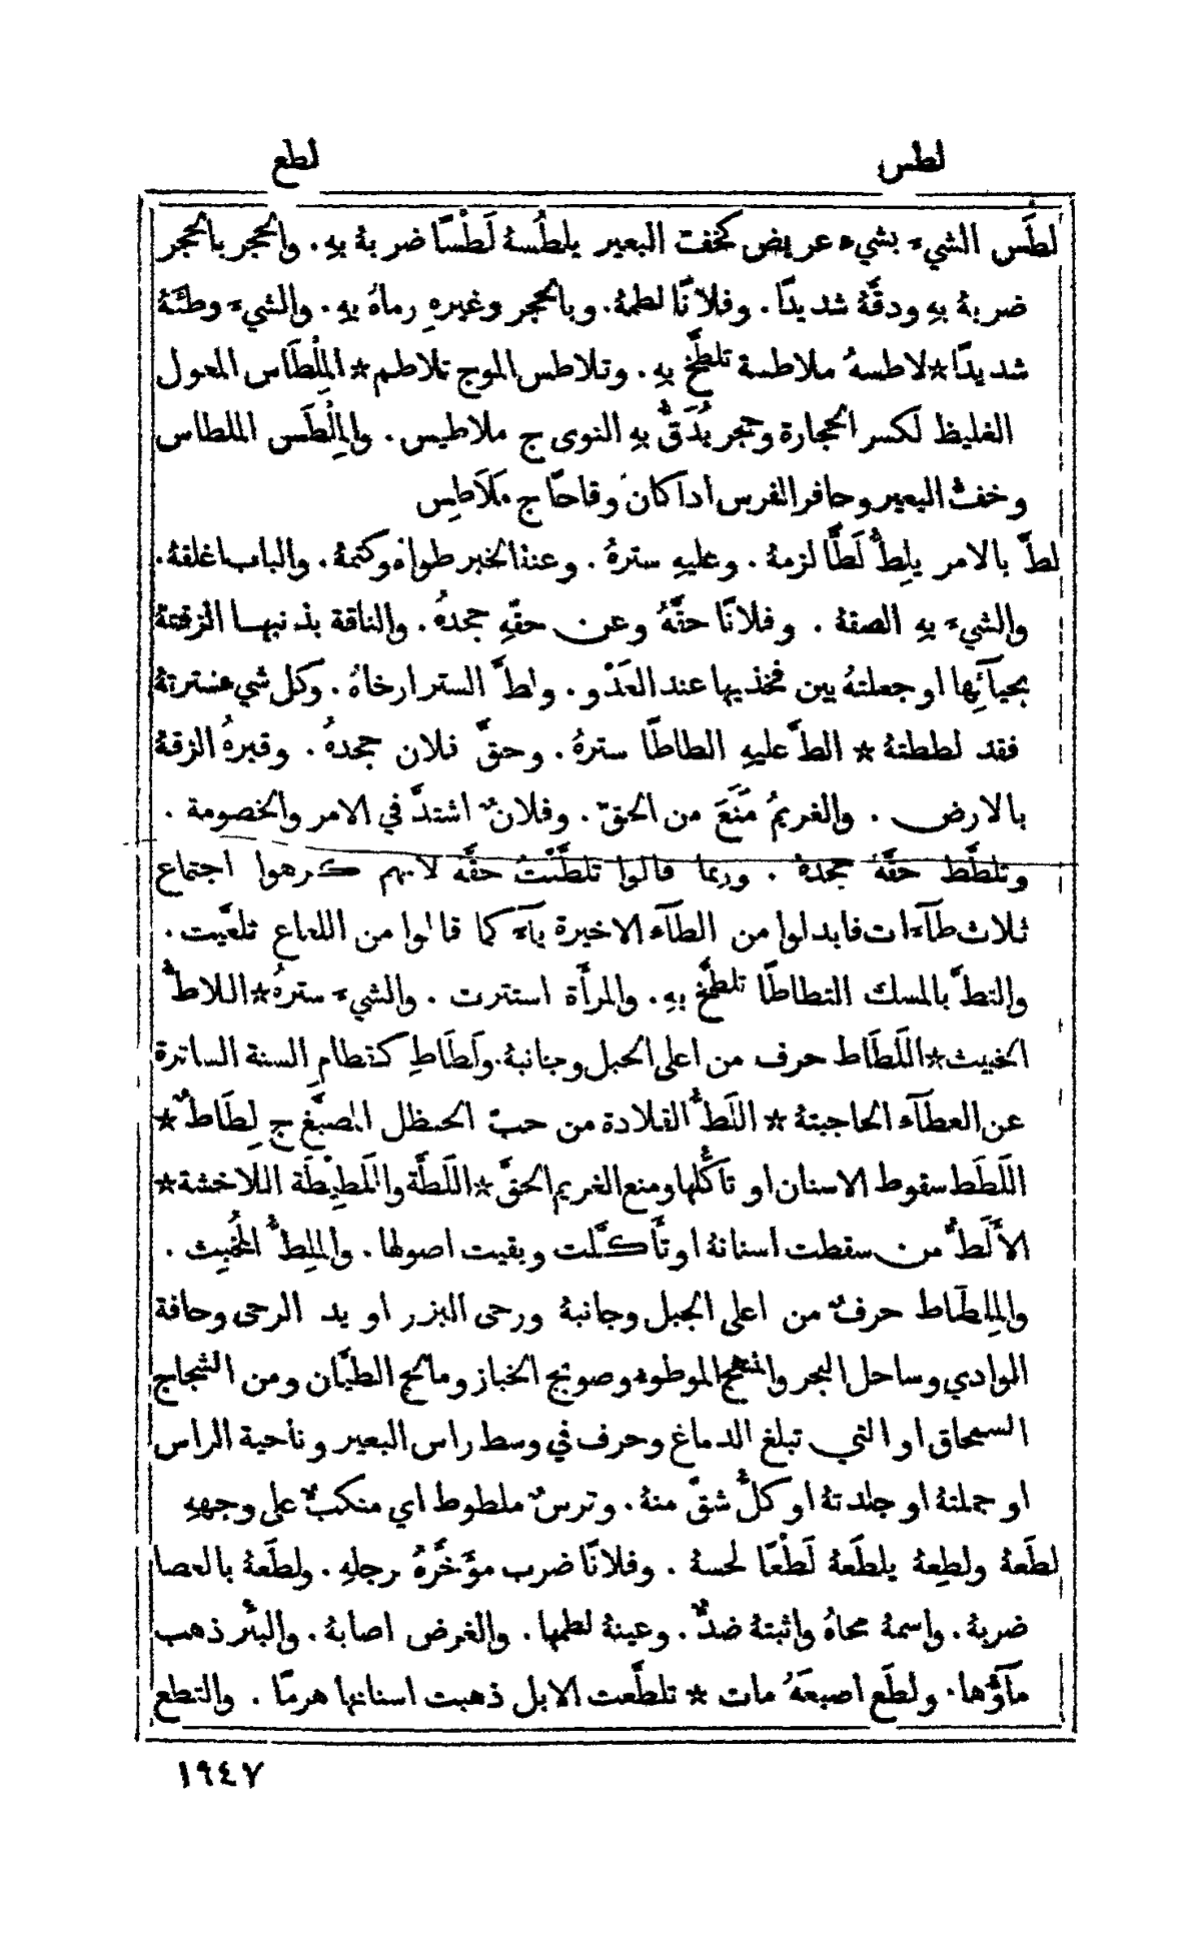 لطس
لطع
لطَس الشيءَ بشيء عريض كخفّ البعير يلطُسهُ لَطْسًا ضربهُ بهِ. والحجر بالحجر
ضربهُ بهِ ودقَّهُ شديدًا. وفلانًا لطمهُ. وبالحجر وغيرهِ رماهُ بهِ. والشيءَ وطئَهُ
شديدًا * لاطسهُ ملاطسة تلطَّخ بهِ. وتلاطس الموج تلاطم * المِلْطَاس المعول
الغليظ لكسر الحجارة وحجر يُدَقُّ بهِ النوى ج ملاطيس. والمِلْطَس الملطاس
وخفُّ البعير وحافر الفرس اذا كان وقاحًا ج مَلَاطِس
لطَّ بالامر يلِطُّ لَطًّا لزمهُ. وعليهِ سترهُ. وعنهُ الخبر طواهُ وكتمهُ. والباب اغلقهُ.
والشيءَ بهِ الصقهُ. وفلانًا حقَّهُ وعن حقّهِ جحدهُ. والناقة بذنبها الزقتهُ
بحيآئِها او جعلتهُ بين فخذيها عند العَدْو. ولطَّ الستر ارخاهُ. وكل شيءٍ سترتهُ
فقد لططتهُ * الطَّ عليهِ الطاطًا سترهُ. وحقَّ فلان جحدهُ. وقبرهُ الزقهُ
بالارض. والغريمُ مَنَعَ من الحقّ. وفلانٌ اشتدَّ في الامر والخصومة.
وتلطَّط حقَّهُ جحدهُ. وربما قالوا تلطَّيْتُ حقَّه لانهم كرهوا اجتماع
ثلاث طآءات فابدلوا من الطآء الاخيرة يآءً كما قالوا من اللعاع تلعَّيت.
والتطَّ بالمسك التطاطًا تلطَّخ بهِ. والمرأَة استترت. والشيءَ سترهُ * اللاطُّ
الخبيث * اللَطَاط حرف من اعلى الجبل وجانبهُ. ولَطَاطِ كقطامِ السنة الساترة
عن العطآء الحاجبتهُ * اللَطُّ القلادة من حبّ الحنظل المصبَّغ ج لِطَاطٌ *
اللَطَط سقوط الاسنان او تأَكُّلها ومنع الغريم الحقَّ * اللَطَّة والمَلْطِطَة اللاخشة *
الأَلَطُّ من سقطت اسنانهُ او تأَكَّلت وبقيت اصولها. والمِلَطُّ الخُبِيث.
والمِلطَاط حرفٌ من اعلى الجبل وجانبهُ ورحى البزر او يد الرحى وحافة
الوادي وساحل البحر والمنهج الموطوءُ وصوبج الخباز ومالج الطيَّان ومن الشجاج
السمحاق او التي تبلغ الدماغ وحرف في وسط راس البعير وناحية الراس
او جملتهُ او جلدتهُ او كلُّ شقّ منهُ. وترسٌ ملطوط اي منكبٌّ على وجههِ
لطَعهُ ولطِعهُ يلطَعهُ لَطْعًا لحسهُ. وفلانًا ضرب مؤَخَّرَهُ برجلهِ. ولطَعهُ بالعصا
ضربهُ. واسمهُ محاهُ واثبتهُ ضدٌّ. وعينهُ لطمها. والغرض اصابهُ. والبئْر ذهب
مآؤُها. ولطَع اصبعَهُ مات * تلطَّعت الابل ذهبت اسنانها هرمًا. والتطع
١٩٤٧